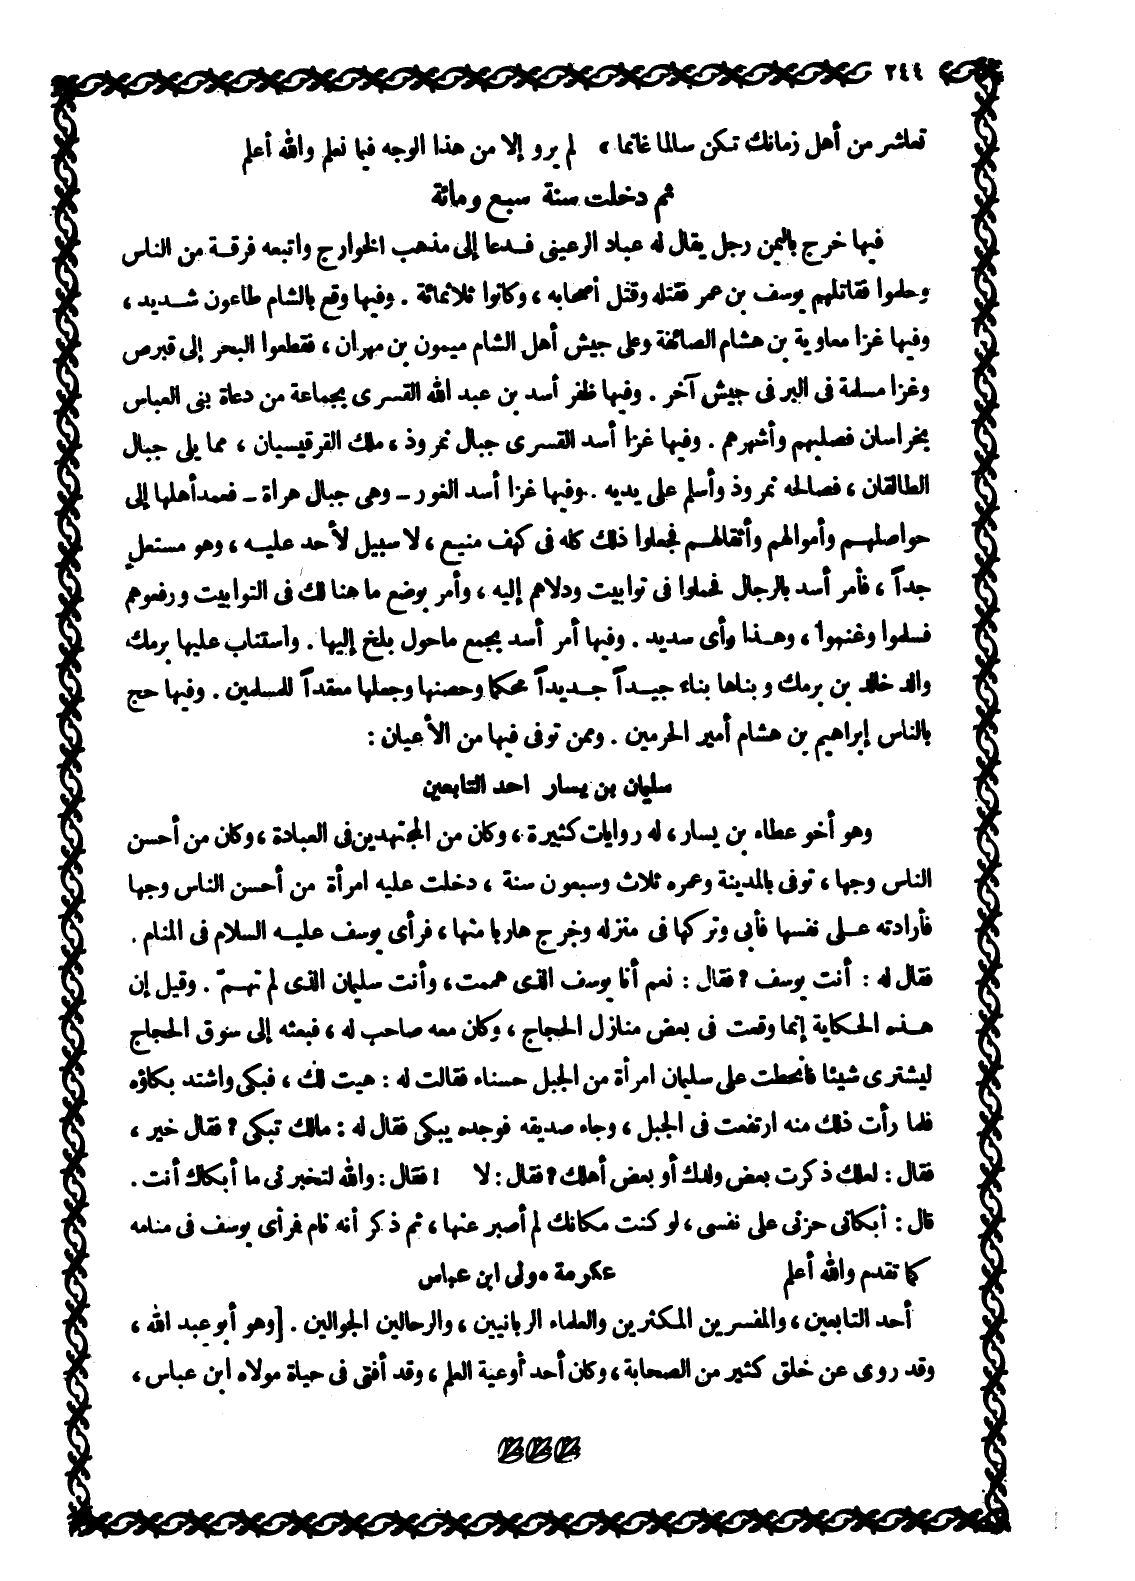 ٢٤٤
تعاشر من أهل زمانك تكن سالما غانما » لم يرو إلا من هذا الوجه فيما نعلم والله أعلم
ثم دخلت سنة سبع ومائة
فيها خرج باليمن رجل يقال له عباد الرعينى فدعا إلى مذهب الخوارج واتبعه فرقة من الناس
وحلموا فقاتلهم يوسف بن عمر فقتله وقتل أصحابه ، وكانوا ثلاثمائة . وفيها وقع بالشام طاعون شديد ،
وفيها غزا معاوية بن هشام الصائفة وعلى جيش أهل الشام ميمون بن مهران ، فقطعوا البحر إلى قبرص
وغزا مسلمة فى البر فى جيش آخر . وفيها ظفر أسد بن عبد الله القسرى بجماعة من دعاة بنى العباس
بخراسان فصلبهم وأشهرهم . وفيها غزا أسد القسرى جبال نمروذ ، ملك القرقيسيان ، مما يلى جبال
الطالقان ، فصالحه نمروذ وأسلم على يديه . وفيها غزا أسد الغور ــ وهى جبال هراة ــ فعمد أهلها إلى
حواصلهم وأموالهم وأثقالهم فجعلوا ذلك كله فى كهف منيع ، لا سبيل لأحد عليه ، وهو مستعل
جداً ، فأمر أسد بالرجال فحملوا فى توابيت ودلاهم إليه ، وأمر بوضع ما هنا لك فى التوابيت ورفعوهم
فسلموا وغنموا ، وهذا رأى سديد . وفيها أمر أسد بجمع ماحول بلخ إليها . واستناب عليها برمك
والد خالد بن برمك وبناها بناء جيداً جديداً محكما وحصنها وجعلها معقداً للمسلمين . وفيها حج
بالناس إبراهيم بن هشام أمير الحرمين . وممن توفى فيها من الأعيان :
سليمان بن يسار احد التابعين
وهو أخو عطاء بن يسار ، له روايات كثيرة ، وكان من المجتهدين فى العبادة ، وكان من أحسن
الناس وجها ، توفى بالمدينة وعمره ثلاث وسبعون سنة ، دخلت عليه امرأة من أحسن الناس وجها
فأرادته على نفسها فأبى وتركها فى منزله وخرج هاربا منها ، فرأى يوسف عليه السلام فى المنام .
فقال له : أنت يوسف ؟ فقال : نعم أنا يوسف الذى هممت ، وأنت سليمان الذى لم تهمّ . وقيل إن
هذه الحكاية إنما وقعت فى بعض منازل الحجاج ، وكان معه صاحب له ، فبعثه إلى سوق الحجاج
ليشترى شيئا فانحطت على سليمان امرأة من الجبل حسناء فقالت له : هيت لك ، فبكى واشتد بكاؤه
فلما رأت ذلك منه ارتفعت فى الجبل ، وجاء صديقه فوجده يبكى فقال له : مالك تبكى ؟ فقال خير ،
فقال : لعلك ذكرت بعض ولدك أو بعض أهلك ؟ فقال : لا ! فقال : والله لتخبرنى ما أبكاك أنت .
قال : أبكانى حزنى على نفسى ، لو كنت مكانك لم أصبر عنها ، ثم ذكر أنه نام فرأى يوسف فى منامه
كما تقدم والله أعلم
عكرمة مولى ابن عباس
أحد التابعين ، والمفسرين المكثرين والعلماء الربانيين ، والرحالين الجوالين . [وهو أبو عبد الله ،
وقد روى عن خلق كثير من الصحابة ، وكان أحد أوعية العلم ، وقد أفتى فى حياة مولاه ابن عباس ،